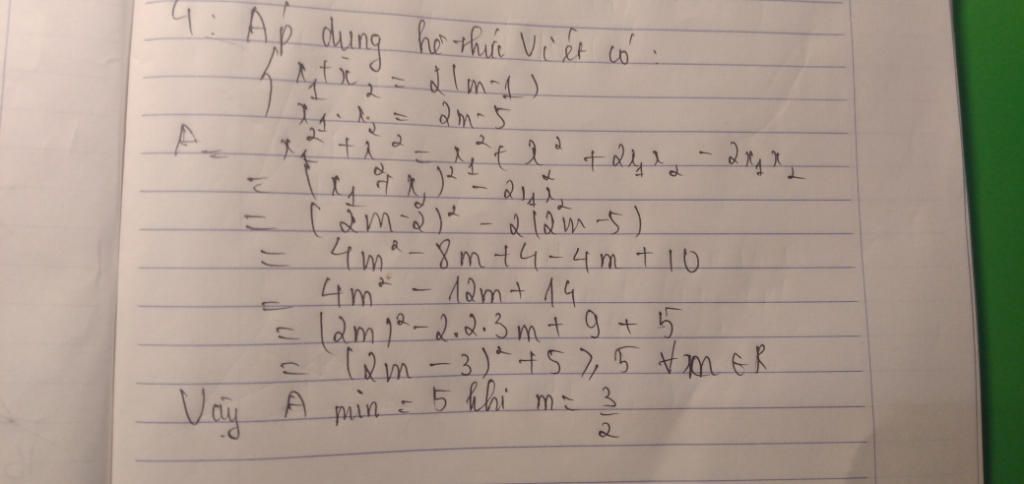 4: Áp dụng hệ thức Viét có:
{ x₁ + x₂ = 2(m-1)
x₁ . x₂ = 2m-5
A = x₁² + x₂² = x₁² + x₂² + 2x₁x₂ - 2x₁x₂
= (x₁ + x₂)² - 2x₁x₂
= (2m-2)² - 2(2m-5)
= 4m² - 8m + 4 - 4m + 10
= 4m² - 12m + 14
= (2m)² - 2.2.3m + 9 + 5
= (2m - 3)² + 5 ⩾ 5 ∀m ∈ R
Vậy A min = 5 khi m = 3/2